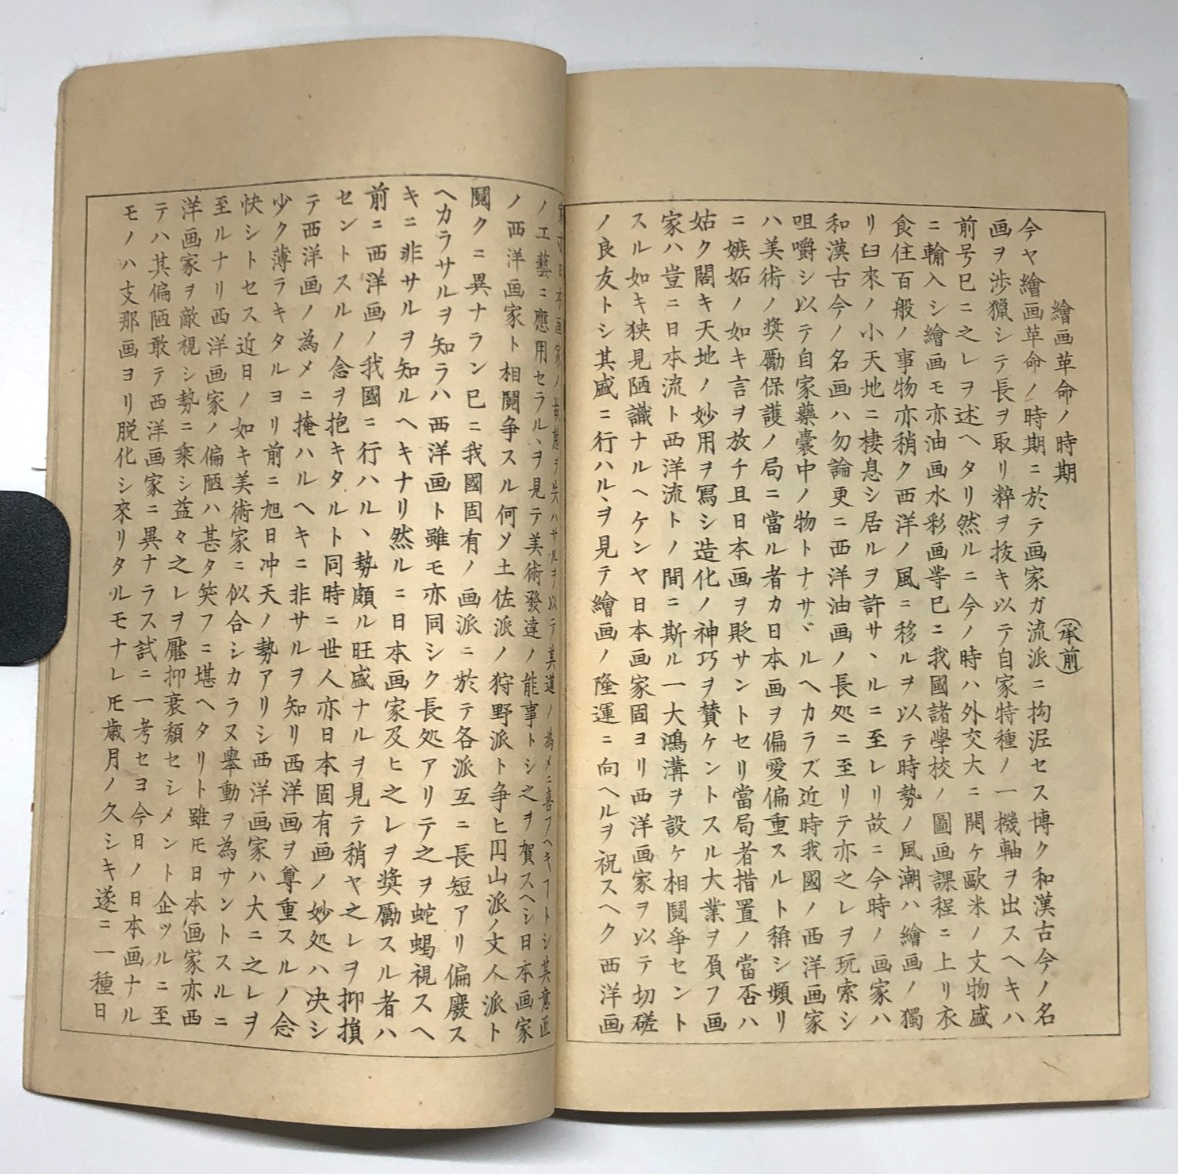 繪画革命ノ時期　（承前）
今ヤ繪画革命ノ時期ニ於テ画家ガ流派ニ拘泥セス博ク和漢古今ノ名
画ヲ渉猟シテ長ヲ取リ粹ヲ抜キ以テ自家特種ノ一機軸ヲ出スヘキハ
前号已ニ之レヲ述ヘタリ然ルニ今ノ時ハ外交大ニ開ケ歐米ノ文物盛
ニ輸入シ繪画モ亦油画水彩画等已ニ我國諸學校ノ圖画課程ニ上リ衣
食住百般ノ事物亦稍ク西洋ノ風ニ移ルヲ以テ時勢ノ風潮ハ繪画ノ獨
リ臼來ノ小天地ニ棲息シ居ルヲ許サヽルニ至レリ故ニ今時ノ画家ハ
和漢古今ノ名画ハ勿論更ニ西洋油画ノ長処ニ至リテ亦之レヲ玩索シ
咀嚼シ以テ自家藥嚢中ノ物トナサヾルヘカラズ近時我國ノ西洋画家
ハ美術ノ奬勵保護ノ局ニ當ル者カ日本画ヲ偏愛偏重スルト稱シ頻リ
ニ嫉妬ノ如キ言ヲ放チ且日本画ヲ貶サントセリ當局者措置ノ當否ハ
姑ク閣キ天地ノ妙用ヲ冩シ造化ノ神巧ヲ賛ケントスル大業ヲ負フ画
家ハ豈ニ日本流ト西洋流トノ間ニ斯ル一大鴻溝ヲ設ケ相鬪争セント
スル如キ狹見陋識ナルヘケンヤ日本画家固ヨリ西洋画家ヲ以テ切磋
ノ良友トシ其盛ニ行ハルヽヲ見テ繪画ノ隆運ニ向ヘルヲ祝スヘク西洋画
ヲ以テ其道ノ為メニ喜フヘキヿトシ其意匠
ノ工藝ニ應用セラルヽヲ見テ美術發達ノ能事トシ之ヲ賀スヘシ日本画家
ノ西洋画家ト相鬪争スル何ソ土佐派ノ狩野派ト争ヒ円山派ノ文人派ト
鬪クニ異ナラン已ニ我國固有ノ画派ニ於テ各派互ニ長短アリ偏廢ス
ヘカラサルヲ知ラハ西洋画ト雖モ亦同シク長処アリテ之ヲ蛇蝎視スヘ
キニ非サルヲ知ルヘキナリ然ルニ日本画家及ヒ之レヲ奬勵スル者ハ
前ニ西洋画ノ我國ニ行ハルヽ勢頗ル旺盛ナルヲ見テ稍ヤ之レヲ抑損
セントスルノ念ヲ抱キタルト同時ニ世人亦日本固有画ノ妙処ハ决シ
テ西洋画ノ為メニ掩ハルヘキニ非サルヲ知リ西洋画ヲ尊重スルノ念
少ク薄ラキタルヨリ前ニ旭日冲天ノ勢アリシ西洋画家ハ大ニ之レヲ
快シトセス近日ノ如キ美術家ニ似合シカラヌ舉動ヲ為サントスルニ
至ルナリ西洋画家ノ偏陋ハ甚タ笑フニ堪ヘタリト雖モ日本画家亦西
洋画家ヲ敵視シ勢ニ乘シ益々之レヲ壓抑衰頽セシメント企ツルニ至
テハ其偏陋敢テ西洋画家ニ異ナラス試ニ一考セヨ今日ノ日本画ナル
モノハ支那画ヨリ脱化シ來リタルモナレ𪜈歳月ノ久シキ遂ニ一種日